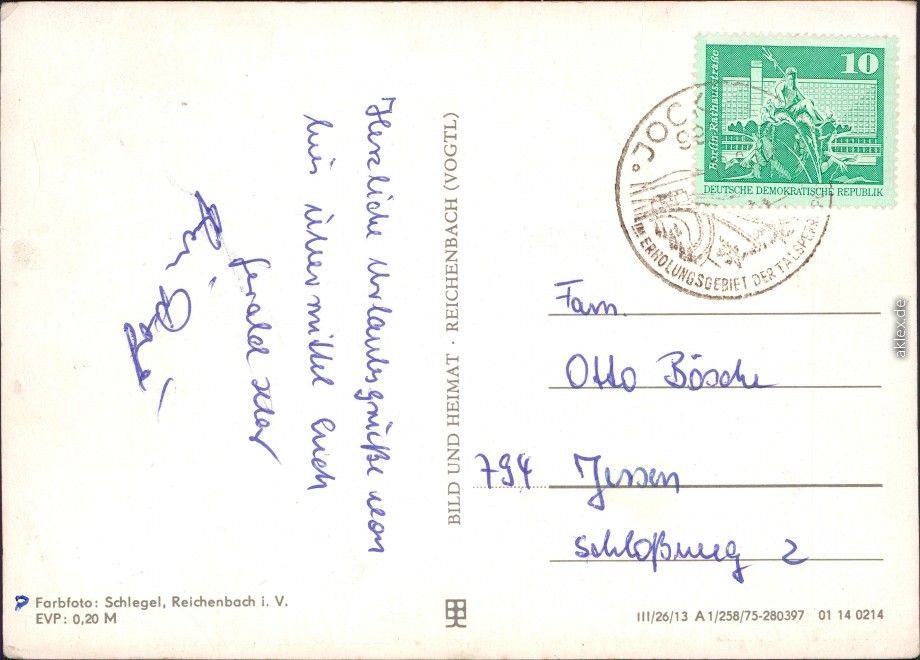 Herzliche Urlaubsgrüße von
hier übermittelt Euch
Gerald
BILD UND HEIMAT · REICHENBACH (VOGTL)
Berlin-Rathausstraße
10
DEUTSCHE DEMOKRATISCHE REPUBLIK
JOC
IM ERHOLUNGSGEBIET DER TALSPERR
Fam.
Otto Bösche
794 Jessen
Schloßweg 2
Farbfoto: Schlegel, Reichenbach i. V.
EVP: 0,20 M
III/26/13 A 1/258/75-280397 01 14 0214
aklex.de